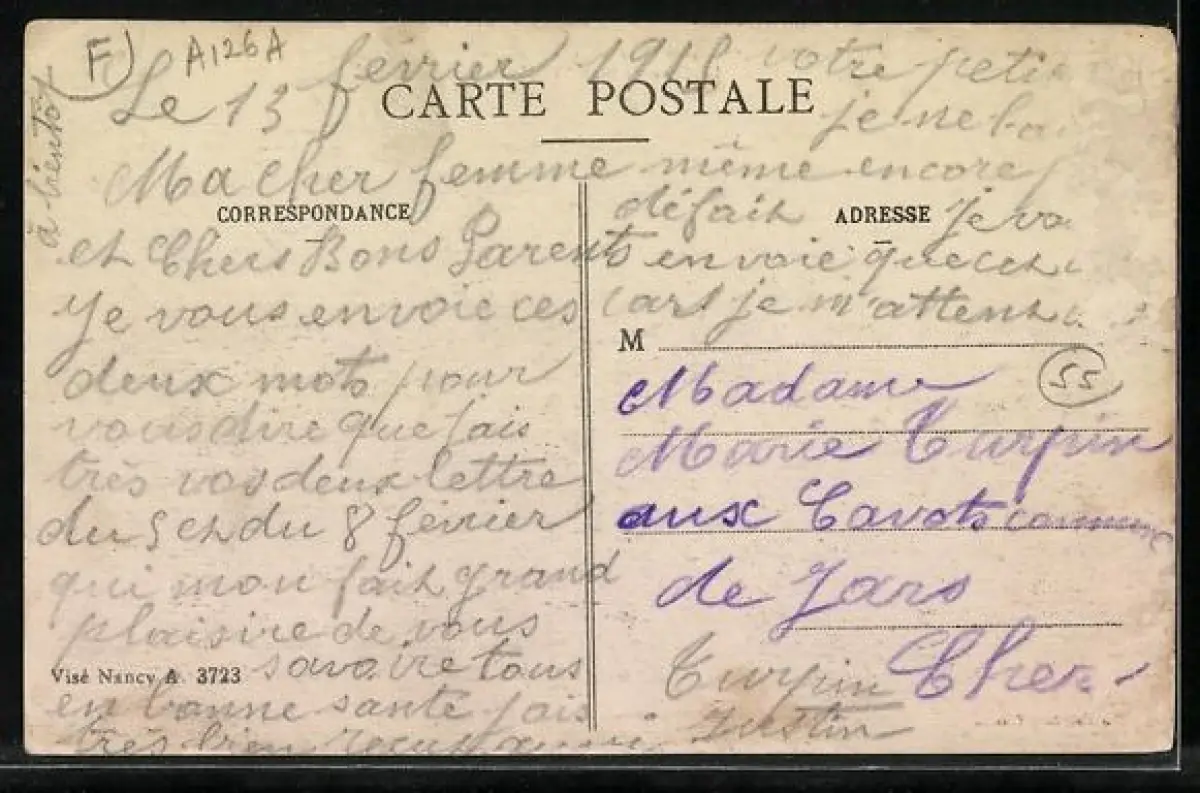 F) A126A
Le 13 février 1918
CARTE POSTALE
Ma cher femme
CORRESPONDANCE
et Chers Bons Parents
Je vous envoie ces
deux mots pour
vous dire que jais
très vos deux lettre
du 5 et du 8 février
qui mon fait grand
plaisire de vous
savoire tous
en bonne santé jais
très bien
Visé Nancy A. 3723
votre peti
je ne
même encore
défait
ADRESSE
Je
envoie
cart je m'attens
à bientôt
M
55
Madame
Marie Turpin
aux Cavots commune
de Jars
Cher
Turpin
Justin